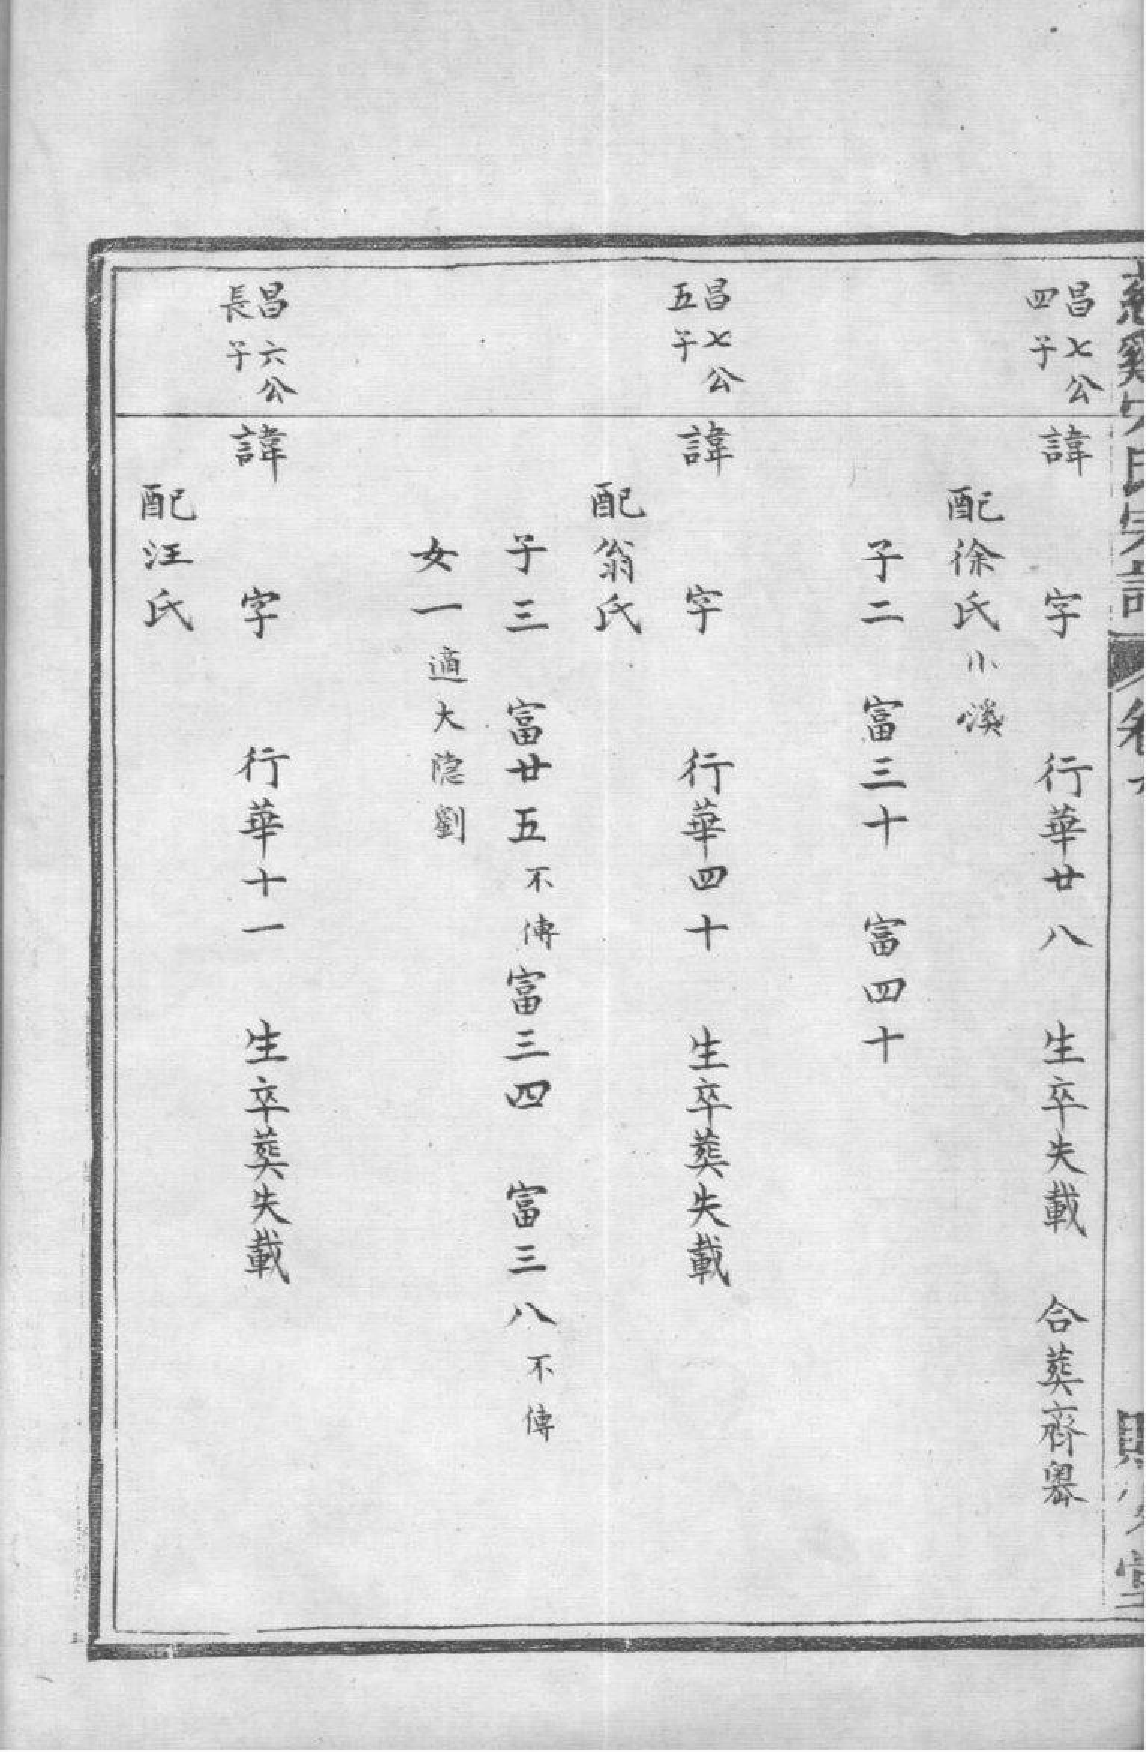 慈谿
氏宗譜
卷
堂
昌七公
四子
諱 字 行華廿八 生卒失載 合葬齊嶴
配徐氏小溪
子二 富三十 富四十
昌七公
五子
諱 字 行華四十 生卒葬失載
配翁氏
子三 富廿五不傳富三四 富三八不傳
女一適大隐劉
昌六公
長子
諱 字 行華十一 生卒葬失載
配汪氏